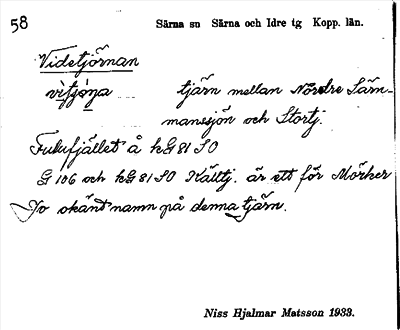 58 Särna sn Särna och Idre tg Kopp. län.
Videtjörnan
tjärn mellan Nördre Särn-
manssjön och Stortj.
Fulufjället å kG 81 SO
G 106 och kG 81 SO Källtj. är ett för Mörker
Jo okänt namn på denna tjärn.
Niss Hjalmar Matsson 1933.